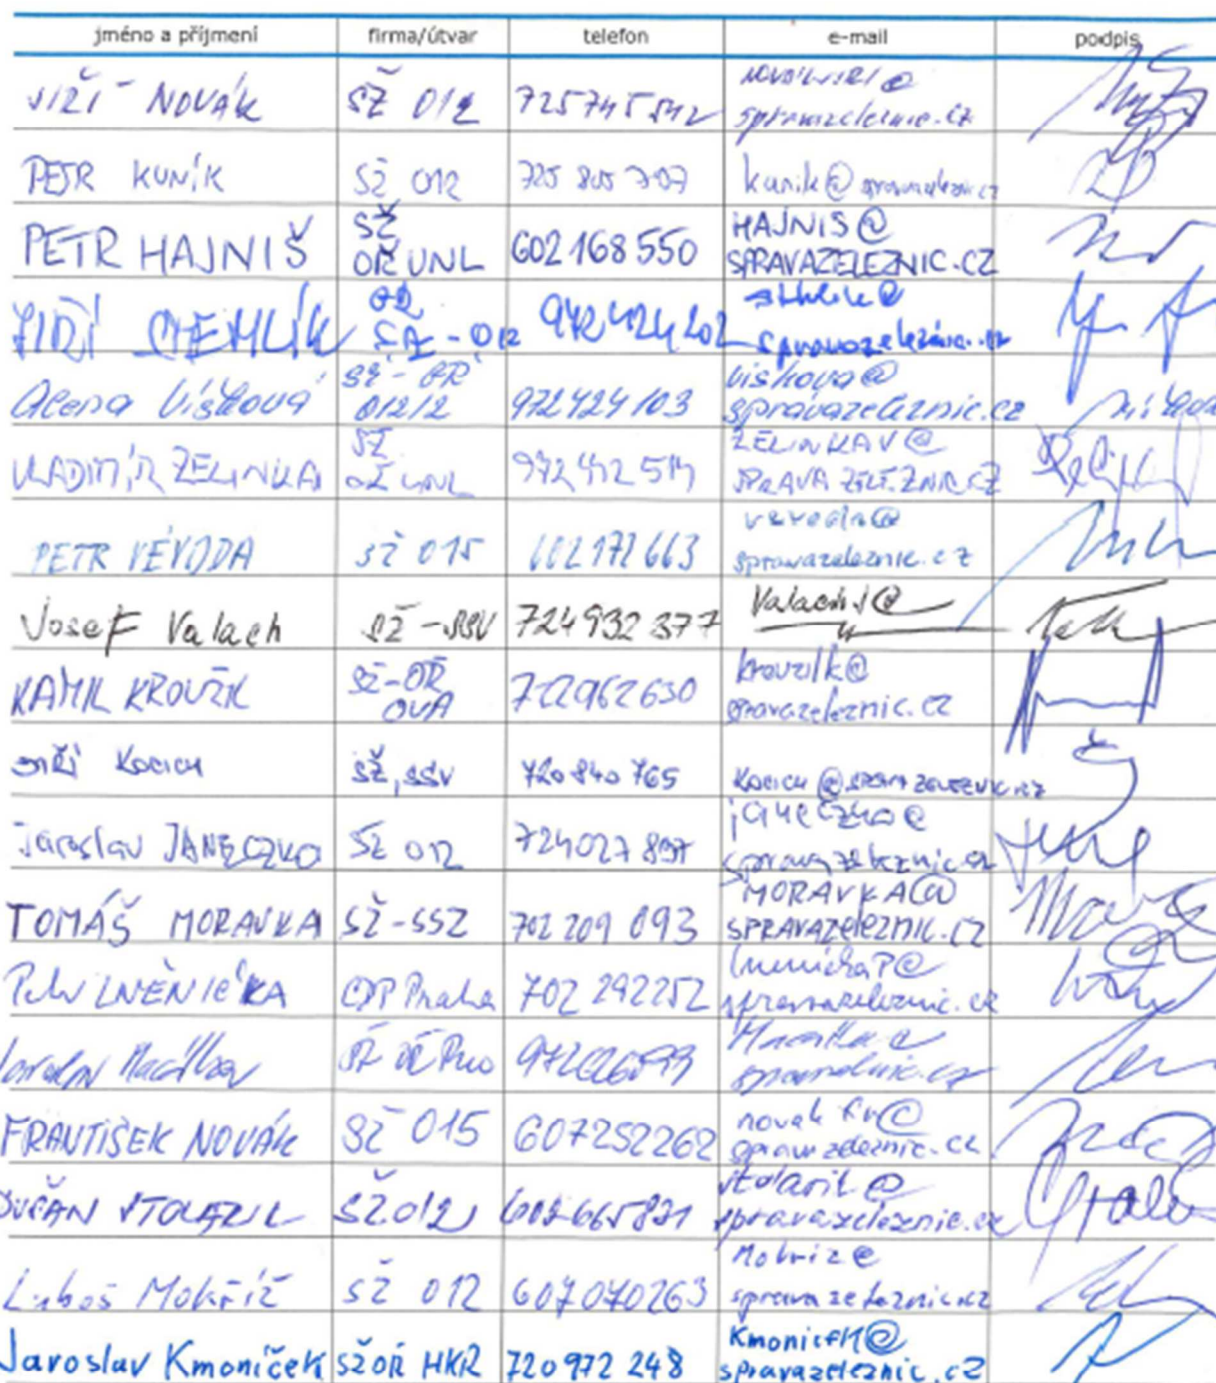 jméno a příjmení firma/útvar telefon e-mail podpis
JIŘÍ NOVÁK SŽ 012 725745542
spravazeleznic.cz
PETR KUNÍK SŽ 012 725 805 707 kunik@spravazeleznic.cz
PETR HAJNIŠ SŽ OŘ UNL 602 168 550 HAJNIS@
SPRAVAZELEZNIC.CZ
JIŘÍ 972 424 202
spravazeleznic.cz
Alena Víšková SŽ - GŘ 012/2 972424103 viskova@
spravazeleznic.cz
VLADIMÍR ZELINKA SŽ OŘ UNL 972 412 514 ZELINKAV@
SPRAVAZELEZNIC.CZ
PETR VÉVODA SŽ 015 602 172 663 vevoda@
spravazeleznic.cz
Josef Valach SŽ - SSV 724 932 377 ValachJ@
KAMIL KROUŽIL SŽ-OŘ OVA 722962630
spravazeleznic.cz
JIŘÍ KOCICH SŽ, SSV 720 840 765 KOCICH@SPRAVAZELEZNIC.CZ
Jaroslav JANECZKO SŽ 012 724027897 janeczko@
spravazeleznic.cz
TOMÁŠ MORAVKA SŽ-SSZ 702 209 093 MORAVKA@
SPRAVAZELEZNIC.CZ
Petr LNĚNIČKA CDP Praha 702 292252
spravazeleznic.cz
FRANTIŠEK NOVÁK SŽ 015 607252262 novakfr@
spravazeleznic.cz
DUŠAN STOLAŘIL SŽ 012 602665821 stolaril@
spravazeleznic.cz
Luboš Mokříž SŽ 012 607070263 mokriz@
spravazeleznic.cz
Jaroslav Kmoníček SŽ OŘ HKR 720 972 248
spravazeleznic.cz